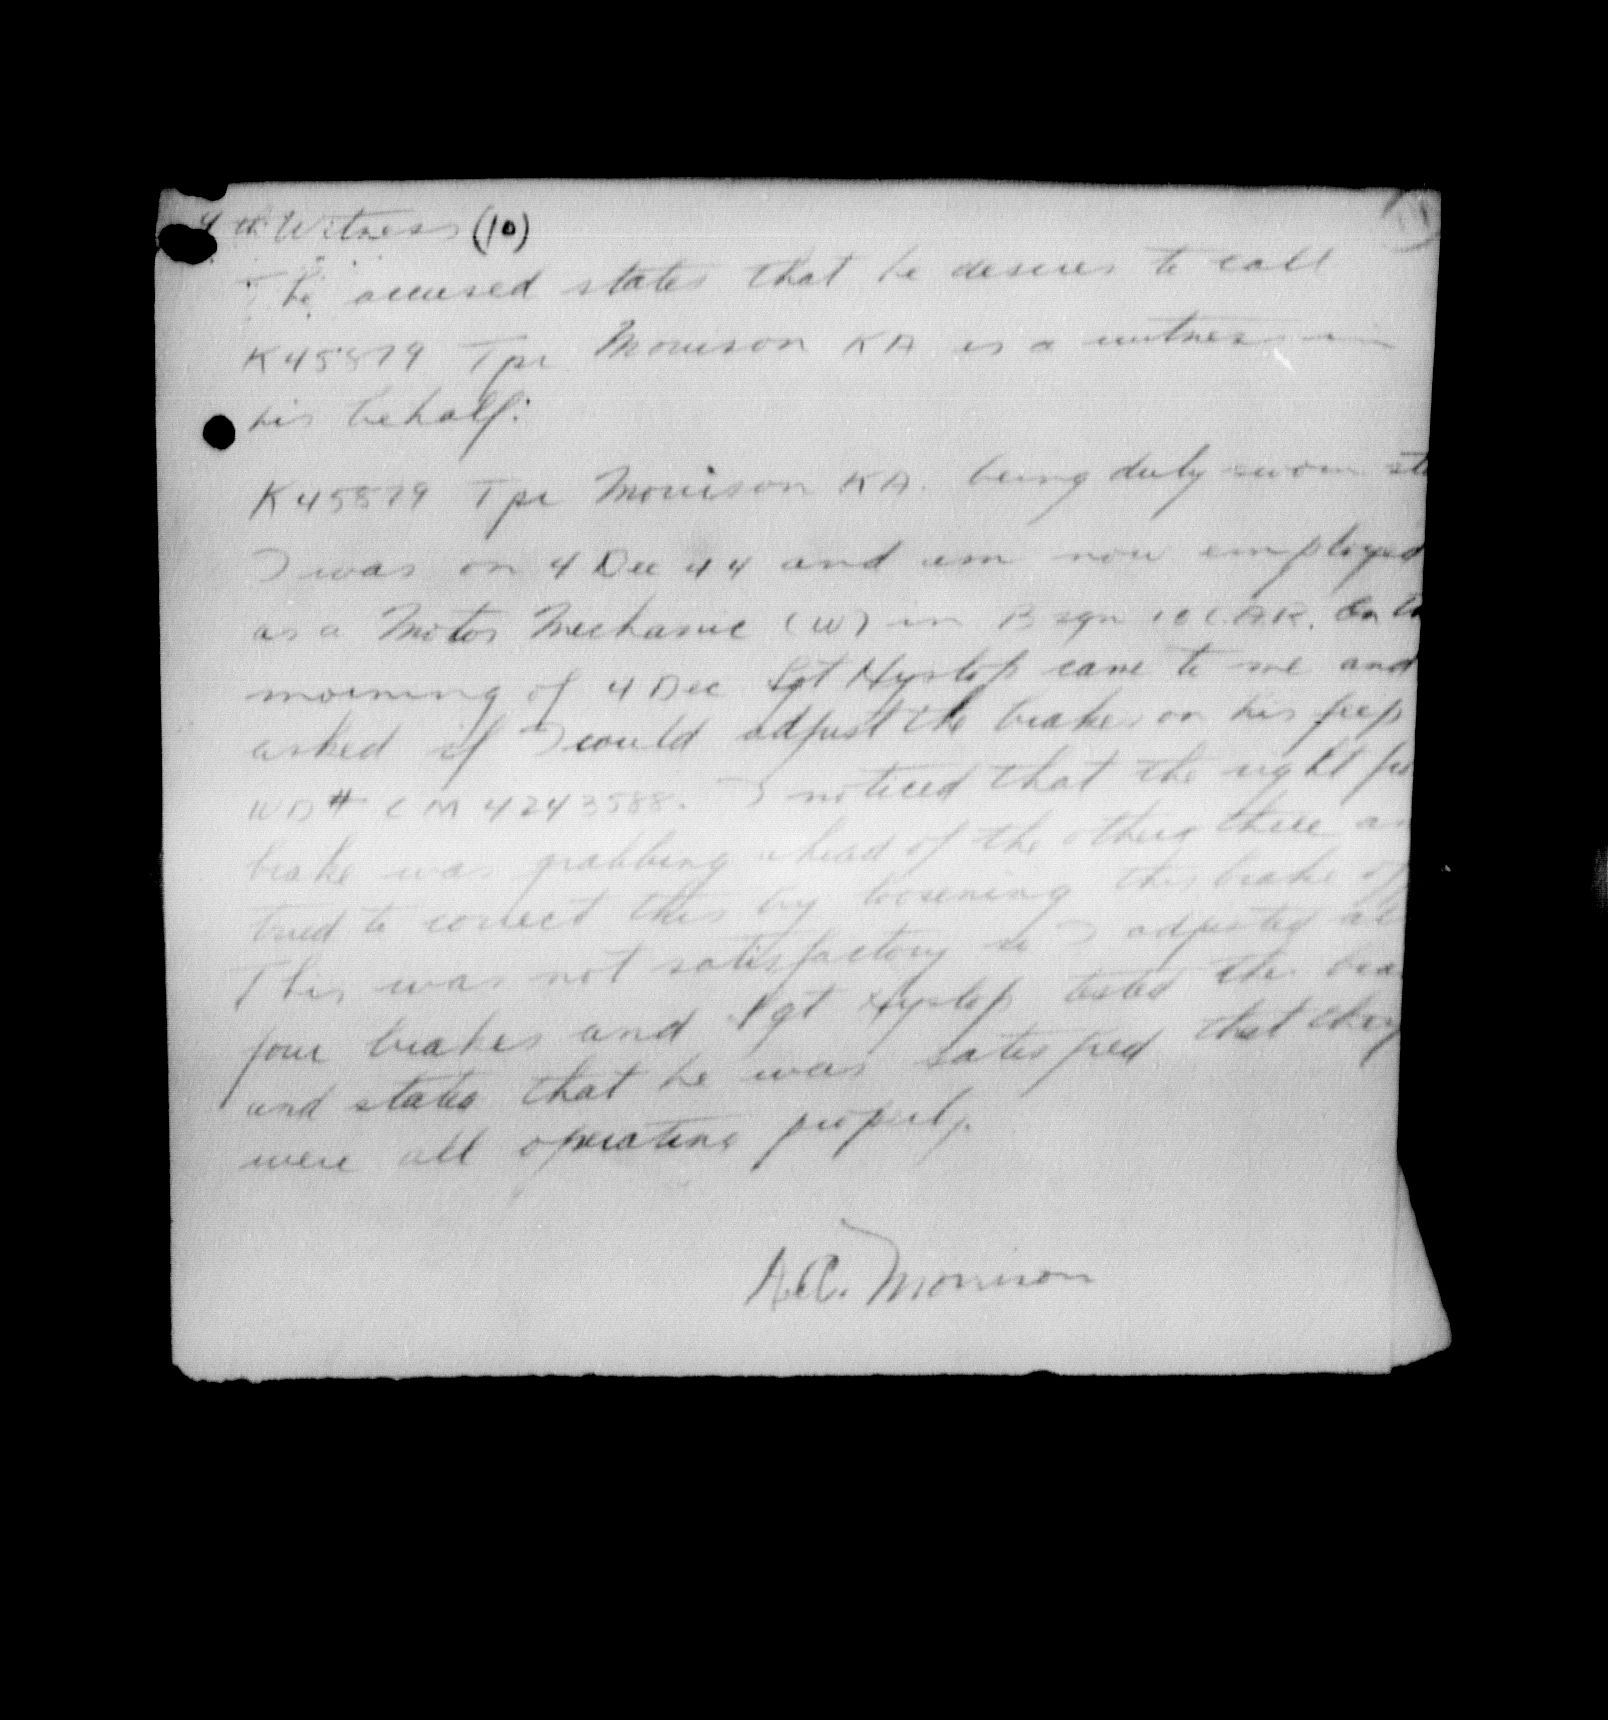 4th Witness (10)
The accused states that he desires to call
K45879 Tpr Morrison KA as a witness in
his behalf:
K45879 Tpr Morrison KA. being duly sworn
I was on 4 Dec 44 and am now employed
as a Motor Mechanic (W) in B sqn 18 C.A.R. On
morning of 4 Dec Sgt Hyslop came to me and
asked if I could adjust the brakes on his jeep
WD# CM 4243588. I noticed that the right
brake was grabbing ahead of the other three
tried to correct this by loosening this brake off
This was not satisfactory so I adjusted
four brakes and Sgt Hyslop tested the
and states that he was satisfied that they
were all operating properly.
Morrison